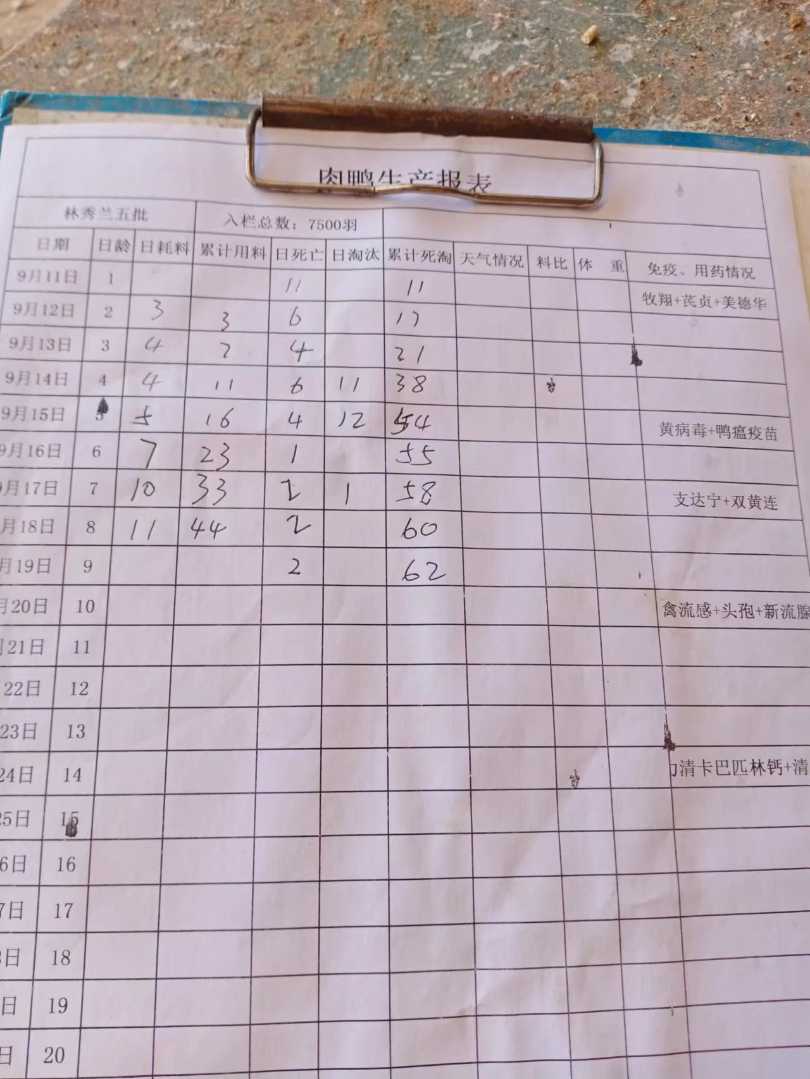 肉鸭生产报表
林秀兰五批 入栏总数：7500羽
日期 日龄 日耗料 累计用料 日死亡 日淘汰 累计死淘 天气情况 料比 体 重 免疫、用药情况
9月11日 1 11 11 牧翔+芪贞+美德华
9月12日 2 3 3 6 17
9月13日 3 4 7 4 21
9月14日 4 4 11 6 11 38
9月15日 5 5 16 4 12 54 黄病毒+鸭瘟疫苗
9月16日 6 7 23 1 55
月17日 7 10 33 2 1 58 支达宁+双黄连
月18日 8 11 44 2 60
月19日 9 2 62
月20日 10 禽流感+头孢+新流腺
月21日 11
22日 12
23日 13
24日 14 清卡巴匹林钙+清
5日 15
6日 16
7日 17
日 18
日 19
日 20